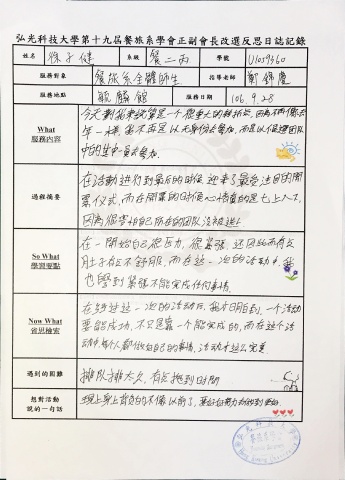 弘光科技大學第十九屆餐旅系學會正副會長改選反思日誌記錄
姓名 徐子健 系級 餐二丙 學號 U1059460
服務對象 餐旅系全體師生 指導老師 鄭錦慶
服務地點 毓麟館 服務日期 106.9.28
What
服務內容
今天對我來說算是一個很重大的轉折點,因為不再像去
年一樣
過程摘要
在活動進行到最後的時候,迎來了最受注目的開
票儀式,而在開票的時候心情真的是七上八下,
因為很害怕自己所在的團隊沒被選上
So What
學習要點
在一開始自己很壓力,很緊張,還因此而有點
肚子有點不舒服,而在這一次的活動中,我
也學到緊張不能完成任何事情
Now What
省思檢索
在經過這一次的活動後,我才明白到,一個活動
要能成功,不只是靠一個能完成的,而在這個活
動中每個人都做好自己的事情,活動才這麼完美
遇到的困難
排隊排太久,有點拖到時間
想對活動
說的一句話
現在身上背負的不像以前了,